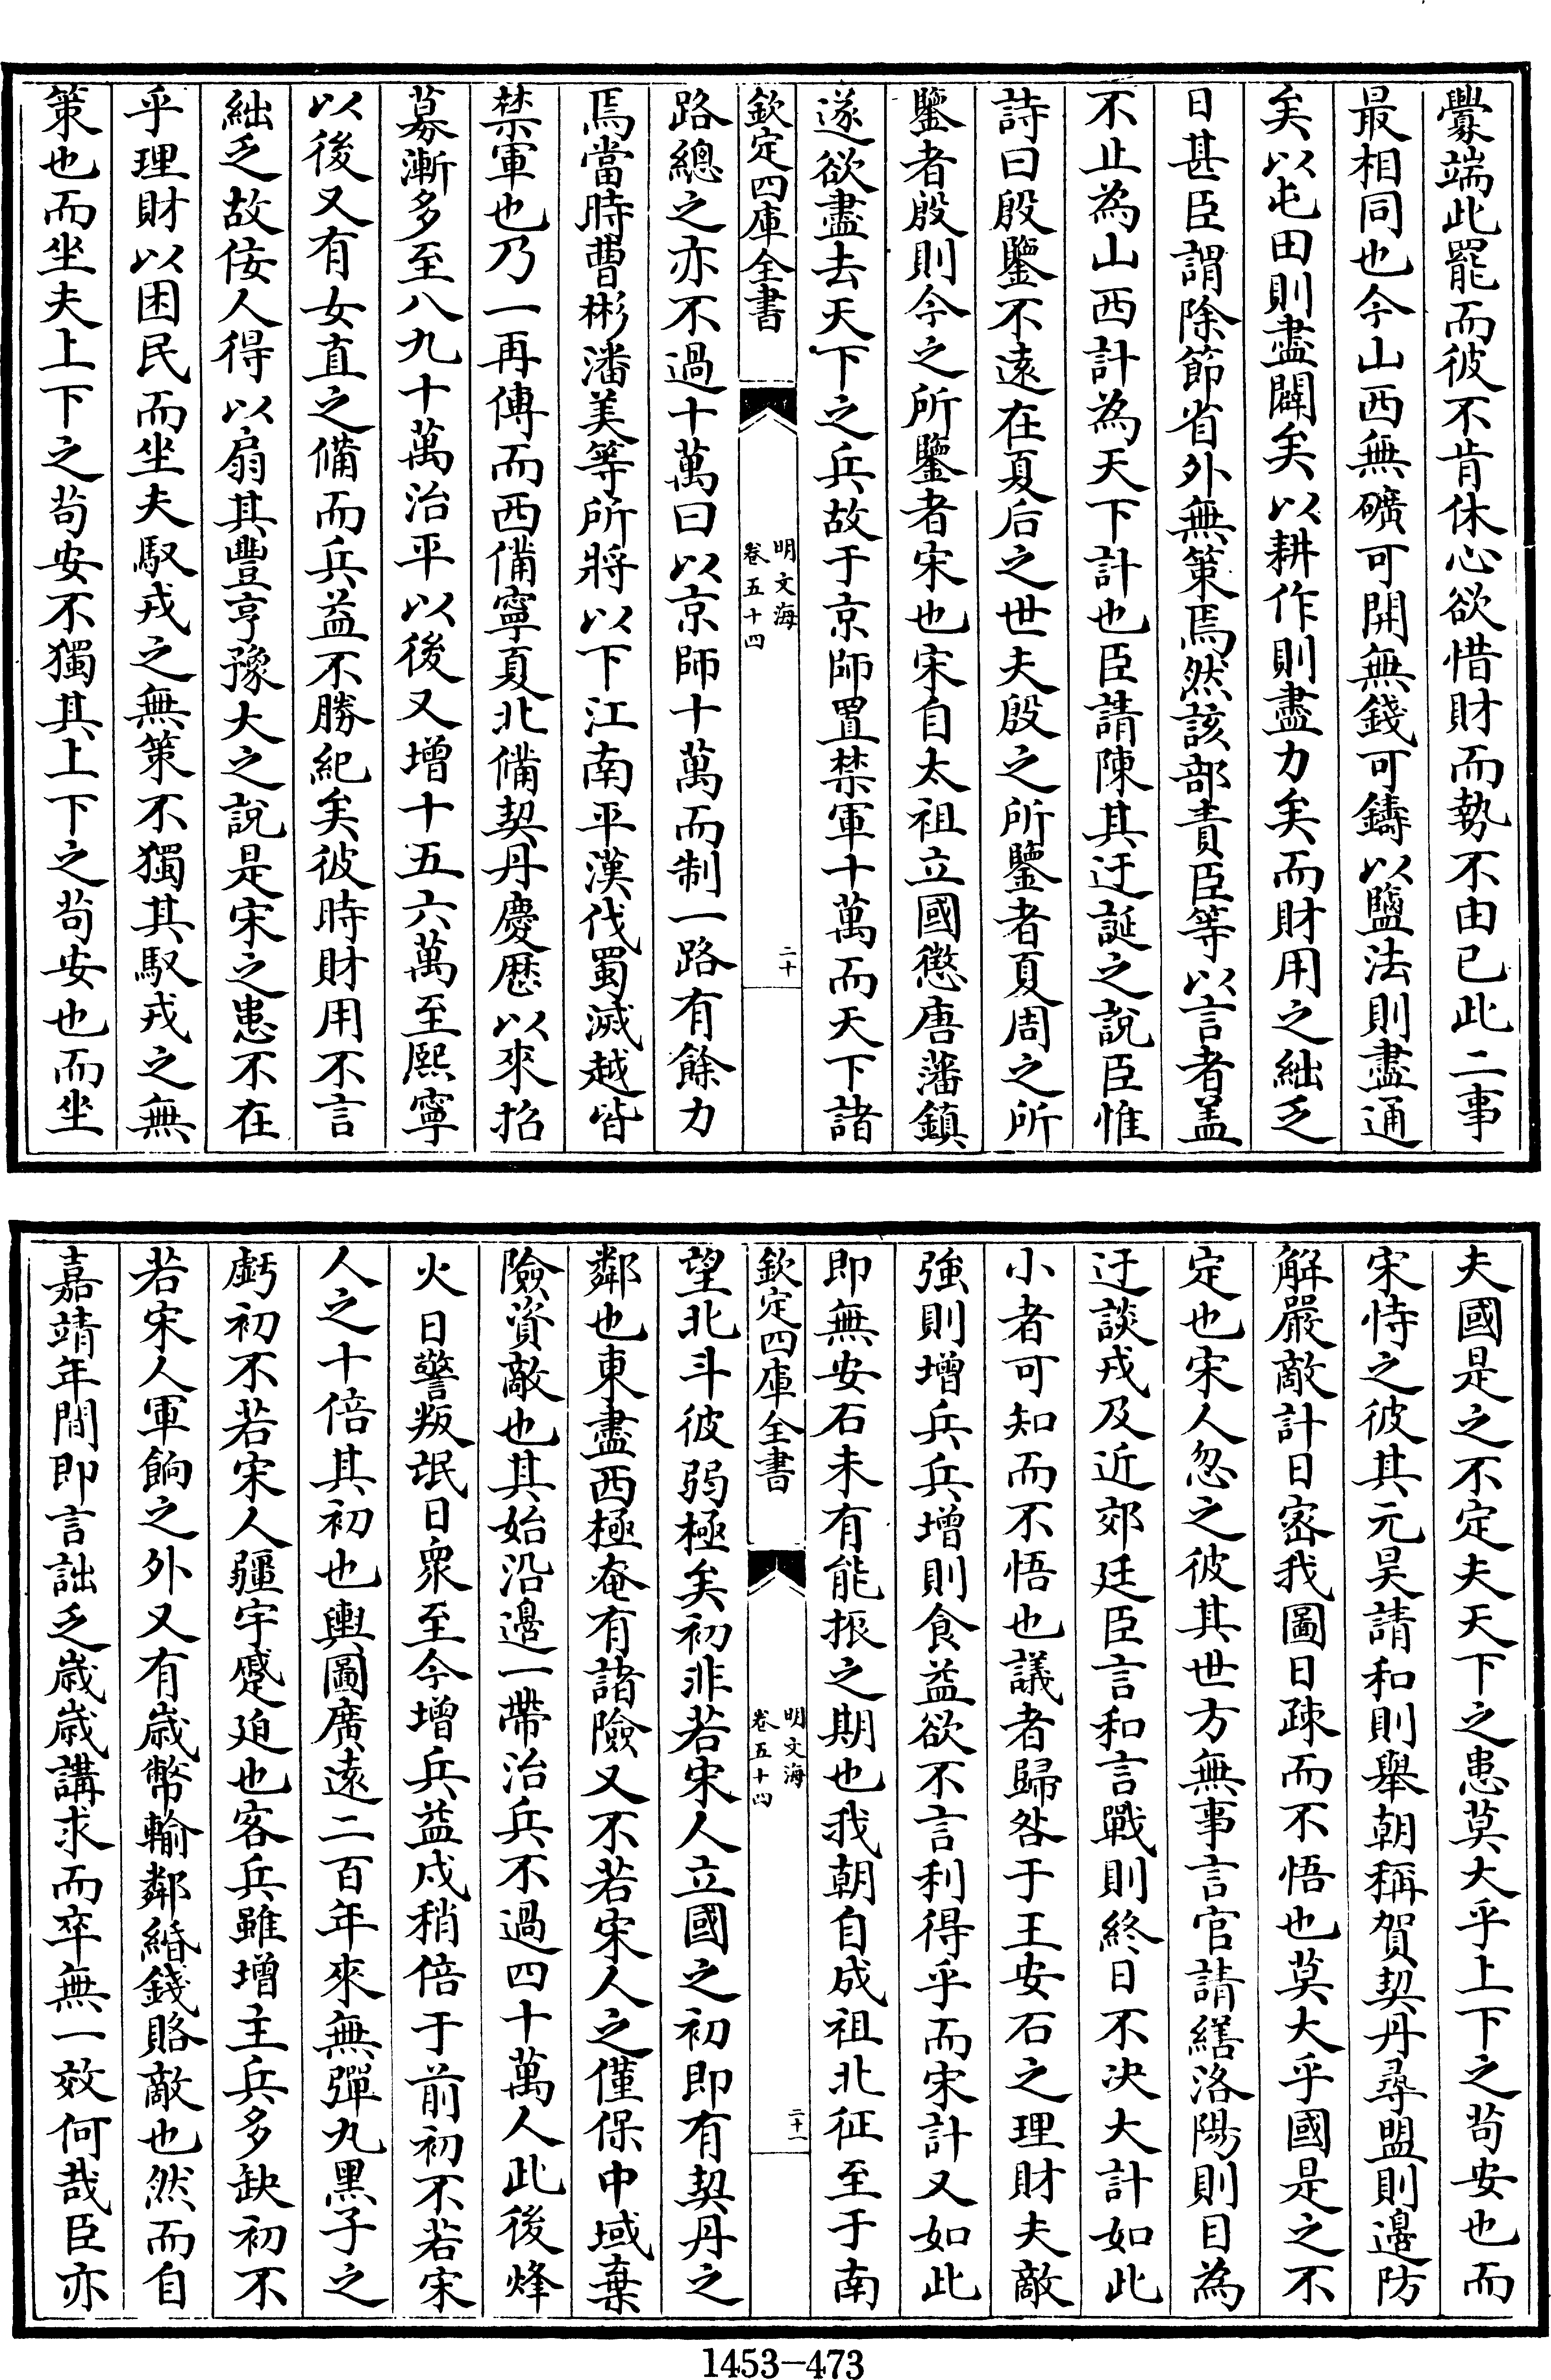 釁端此罷而彼不肯休心欲惜財而勢不由已此二事
最相同也今山西無礦可開無錢可鑄以鹽法則盡通
矣以屯田則盡闢矣以耕作則盡力矣而財用之絀乏
日甚臣謂除節省外無策焉然該部責臣等以言者盖
不止為山西計為天下計也臣請陳其迂誕之說臣惟
詩曰殷鑒不遠在夏后之世夫殷之所鑒者夏周之所
鑒者殷則今之所鑒者宋也宋自太祖立國懲唐藩鎮
遂欲盡去天下之兵故于京師置禁軍十萬而天下諸
欽定四庫全書
明文海
卷五十四
二十
路總之亦不過十萬曰以京師十萬而制一路有餘力
焉當時曹彬潘美等所將以下江南平漢伐蜀滅越皆
禁軍也乃一再傳而西備寧夏北備契丹慶歷以來招
募漸多至八九十萬治平以後又增十五六萬至熙寧
以後又有女直之備而兵益不勝紀矣彼時財用不言
絀乏故佞人得以扇其豐亨豫大之說是宋之患不在
乎理財以困民而坐夫馭戎之無策不獨其馭戎之無
策也而坐夫上下之苟安不獨其上下之苟安也而坐
夫國是之不定夫天下之患莫大乎上下之苟安也而
宋恃之彼其元昊請和則舉朝稱賀契丹尋盟則邊防
解嚴敵計日密我圖日疎而不悟也莫大乎國是之不
定也宋人忽之彼其世方無事言官請繕洛陽則目為
迂談戎及近郊廷臣言和言戰則終日不決大計如此
小者可知而不悟也議者歸咎于王安石之理財夫敵
強則增兵兵增則食益欲不言利得乎而宋計又如此
即無安石未有能振之期也我朝自成祖北征至于南
欽定四庫全書
明文海
卷五十四
二十一
望北斗彼弱極矣初非若宋人立國之初即有契丹之
鄰也東盡西極奄有諸險又不若宋人之僅保中域棄
險資敵也其始沿邊一帶治兵不過四十萬人此後烽
火日警叛氓日衆至今增兵益戍稍倍于前初不若宋
人之十倍其初也輿圖廣遠二百年來無彈丸黑子之
虧初不若宋人疆宇蹙迫也客兵雖增主兵多缺初不
若宋人軍餉之外又有歲幣輸鄰緡錢賂敵也然而自
嘉靖年間即言詘乏歲歲講求而卒無一效何哉臣亦
1453-473